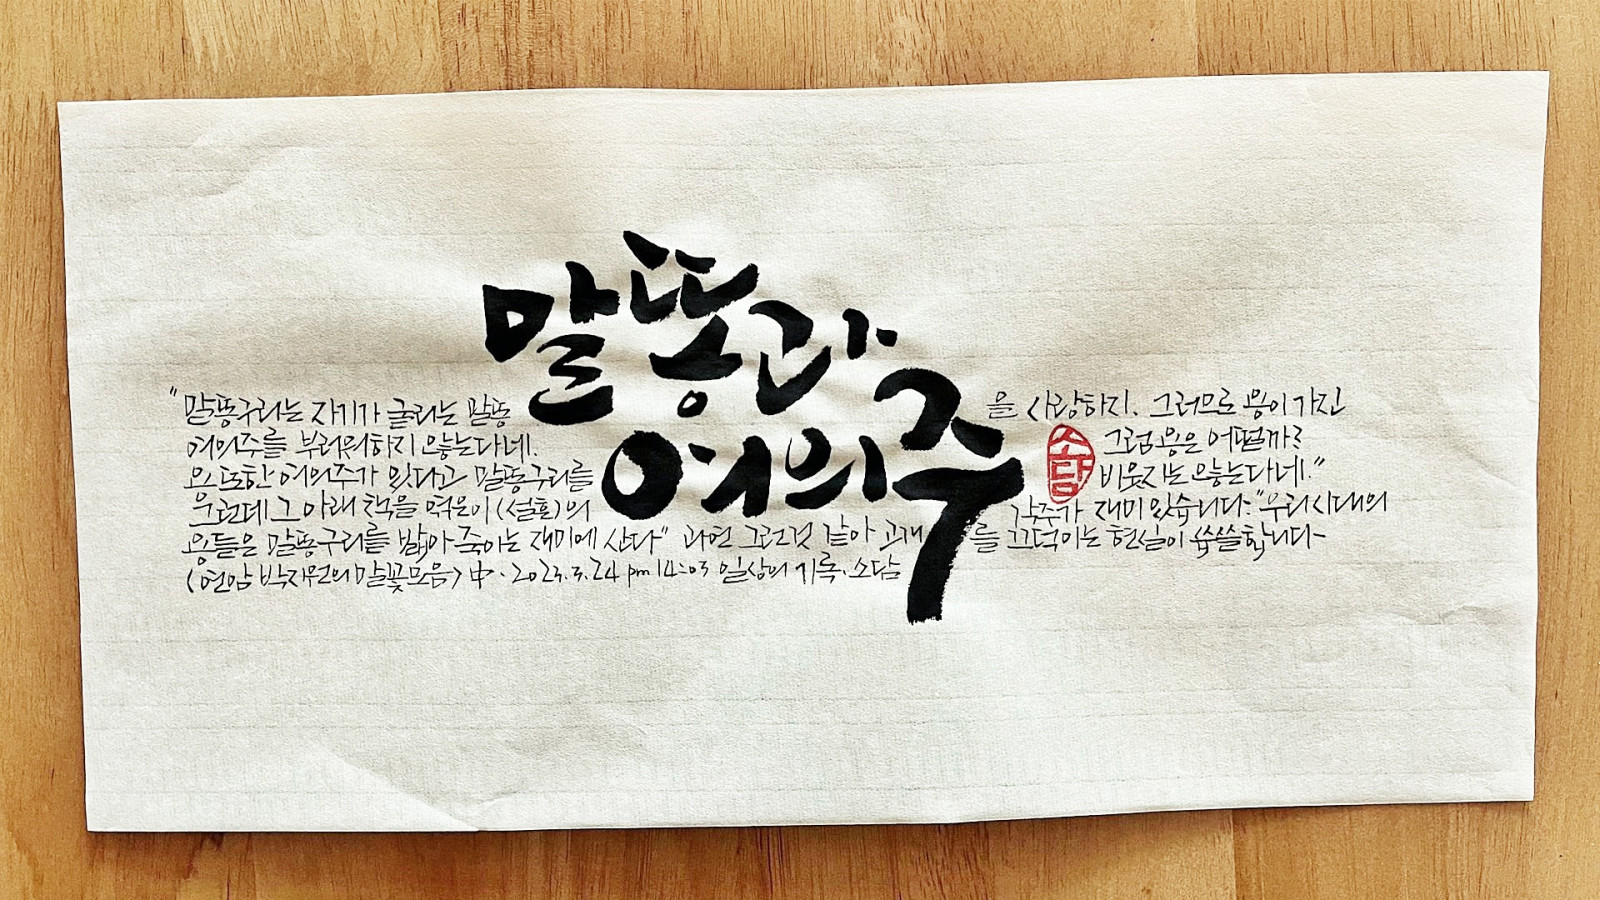 말똥과
여의주
"말똥구리는 자기가 굴리는 말똥을 사랑하지. 그러므로 용이 가진
여의주를 부러워하지 않는다네. 그럼 용은 어떨까?
용 또한 여의주가 있다고 말똥구리를 비웃지는 않는다네."
우런데 그 아래 책을 엮은이 (설흔)의 각주가 재미있습니다. "우리시대의
용들은 말똥구리를 밟아 죽이는 재미에 산다" 과연 그런것 같아 고개를 끄덕이는 현실이 씁쓸합니다~
<연암 박지원의 말꽃모음> 中. 2023.3.24 pm 14:03 일상의 기록. 소담
소담